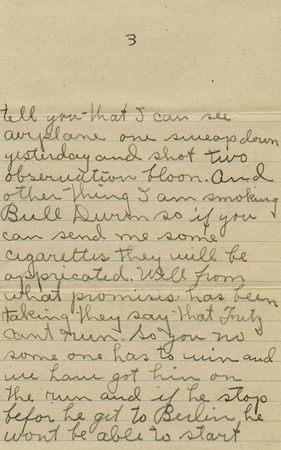 3
tell you that I can see
airplane one sweap down
yesterday and shot two
observation bloon. And
other thing I am smoking
Bull Durm so if you
can send me some
cigarettes they will be
appricated. Well from
what promises has been
taking they say that Fritz
cant run. So you no
some one has to win and
we have got him on
the run and if he stop
befor he git to Berlin he
wont be able to start